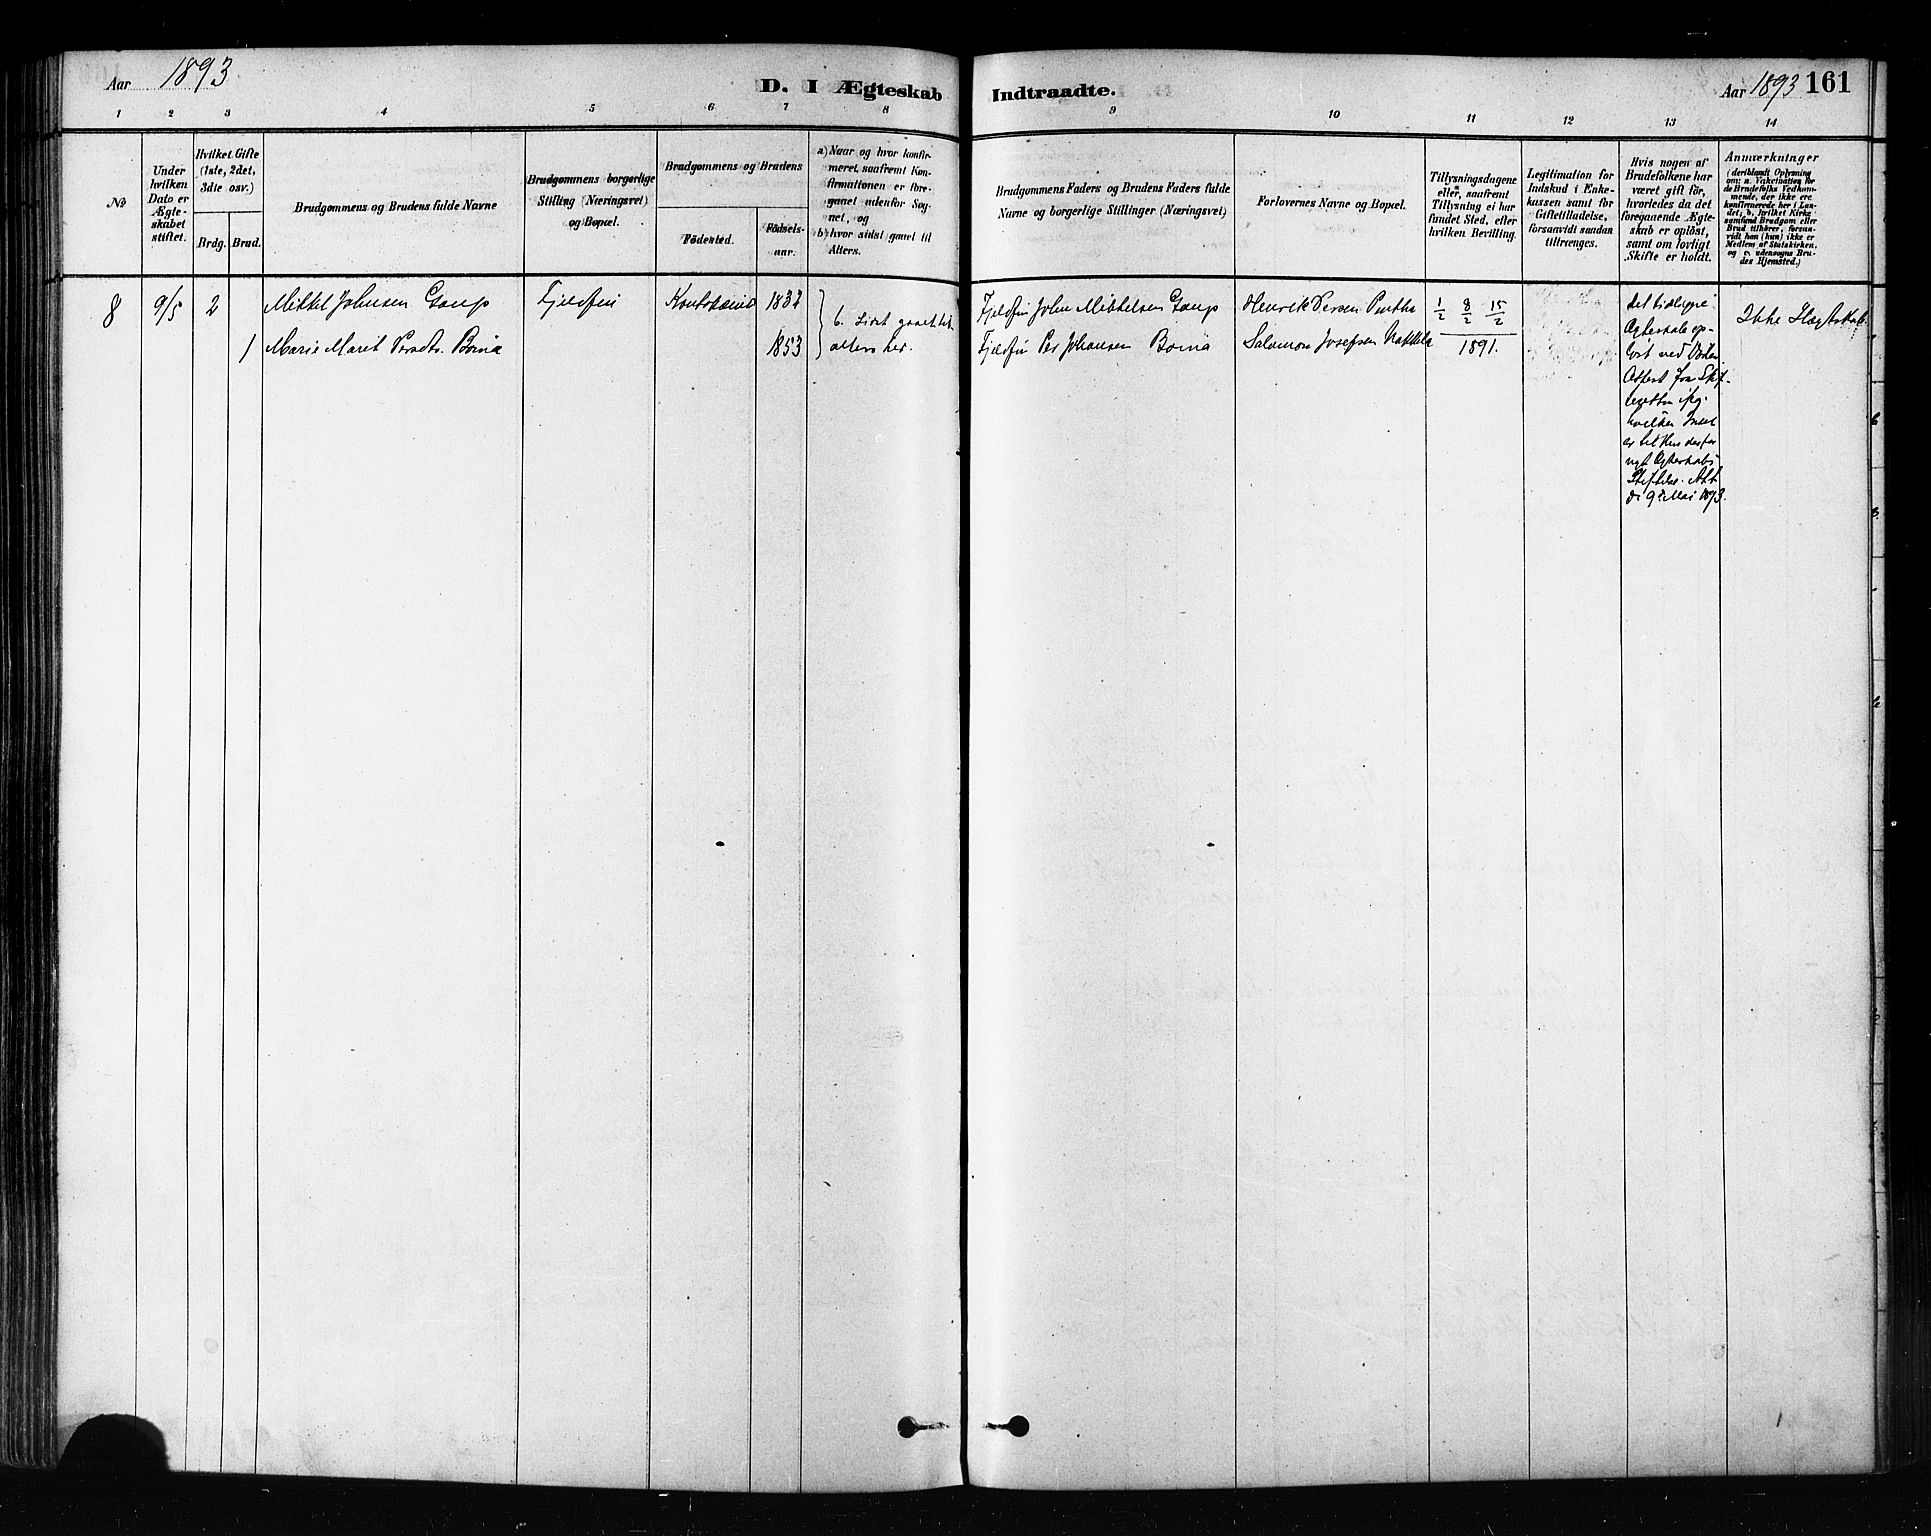 Aar 1893
D. I Ægteskab Indtraadte.
Aar 1893 161
1 2 3 4 5 6 7 8 9 10 11 12 13 14
No
Under
hvilken
Dato er
Ægte-
skabet
stiftet.
Hvilket Gifte
(1ste, 2det,
3die osv.)
Brdg. Brud.
Brudgommens og Brudens fulde Navne
Brudgommens borgerlige
Stilling (Næringsvei)
og Bopæl.
Brudgommens og Brudens
Födested.
Födsels-
aar.
a) Naar og hvor konfir-
meret, saafremt Kon-
firmationen er fore-
gaaet udenfor Sog-
net, og
b) hvor sidst gaaet til
Alters.
Brudgommens Faders og Brudens Faders fulde
Navne og borgerlige Stillinger (Næringsvei)
Forlovernes Navne og Bopæl.
Tillysningsdagene
eller, saafremt
Tillysning ei har
fundet Sted, efter
hvilken Bevilling.
Legitimation for
Indskud i Enke-
kassen samt for
Giftetilladelse,
forsaavidt saadan
tiltrænges.
Hvis nogen af
Brudefolkene har
været gift för,
hvorledes da det
foregaaende Ægte-
skab er oplöst,
samt om lovligt
Skifte er holdt.
Anmærkninger
(deriblandt Oplysning
om: a. Vakcination for
de Brudefolks Vedkom-
mende, der ikke ere
konfirmerede her i Lan-
det; b. hvilket Kirke-
samfund Brudgom eller
Brud tilhörer, forsaa-
vidt han (hun) ikke er
Medlem af Statskirken,
og c. udensogns Bru-
des Hjemsted.)
8 9/5 2 Mikkel Johnsen Gaup Fjeldfin Kautokeino 1832 b. Sidst gaaet til
1 Marie Maret Persdtr. Bonia 1853 alters her.
Fjeldfin John Mikkelsen Gaup Henrik Persen 1/2 8/2 15/2
Fjeldfin Per Johansen Bonia Salamon Josefsen Nakkela 1891.
det tidligere
Ægteskab op-
löst ved Döden.
Attest fra Skif-
teretten
hvilken Intet
er til Hinder for
nyt Ægteskabs
Stiftelse. Att
d. 9de Mai 1893.
Ikke Slægtskab.